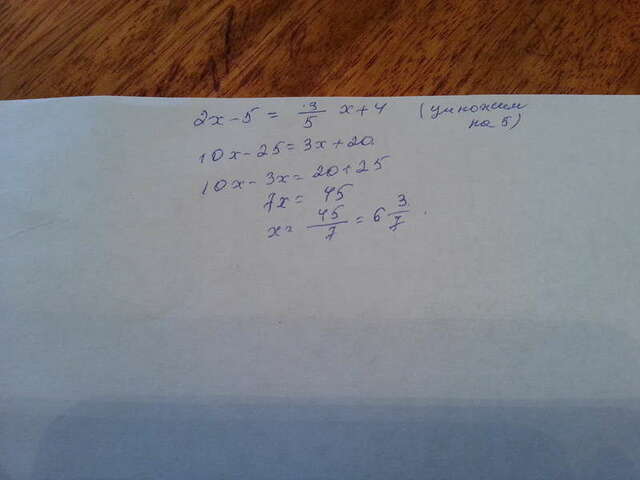 2x - 5 = 3/5 x + 4 (умножим
на 5)
10x - 25 = 3x + 20.
10x - 3x = 20 + 25
7x = 45
x = 45/7 = 6 3/7.